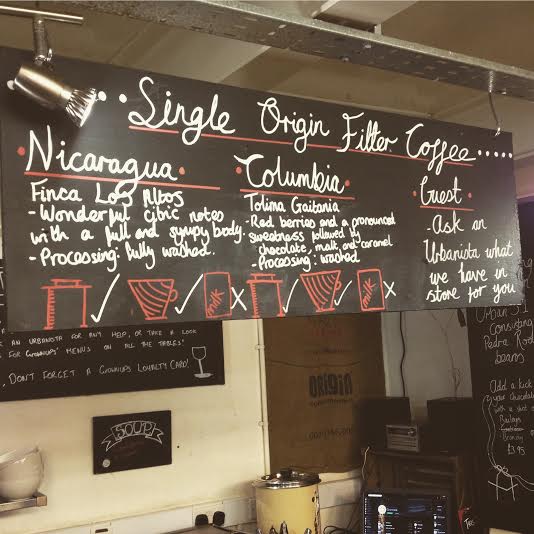 Single Origin Filter Coffee
Nicaragua
Finca Los Altos
- Wonderful citric notes
with a full and syrupy body.
- Processing: fully washed.
milk
Columbia
Tolima Gaitania
- Red berries and a pronounced
sweetness followed by
chocolate, malt, and caramel
- Processing: washed
milk
Guest
- Ask an
Urbanista what
we have in
store for you
AN URBANISTA FOR ANY HELP, OR TAKE A LOOK
FOR GROWNUPS' MENUS ON ALL THE TABLES!
DON'T FORGET A GROWNUPS LOYALTY CARD!
SOUP
ORIGIN
Consisting
Pedra
beans
Add a kick
your chocolate
with a shot of
Baileys
Brandy
£3.95